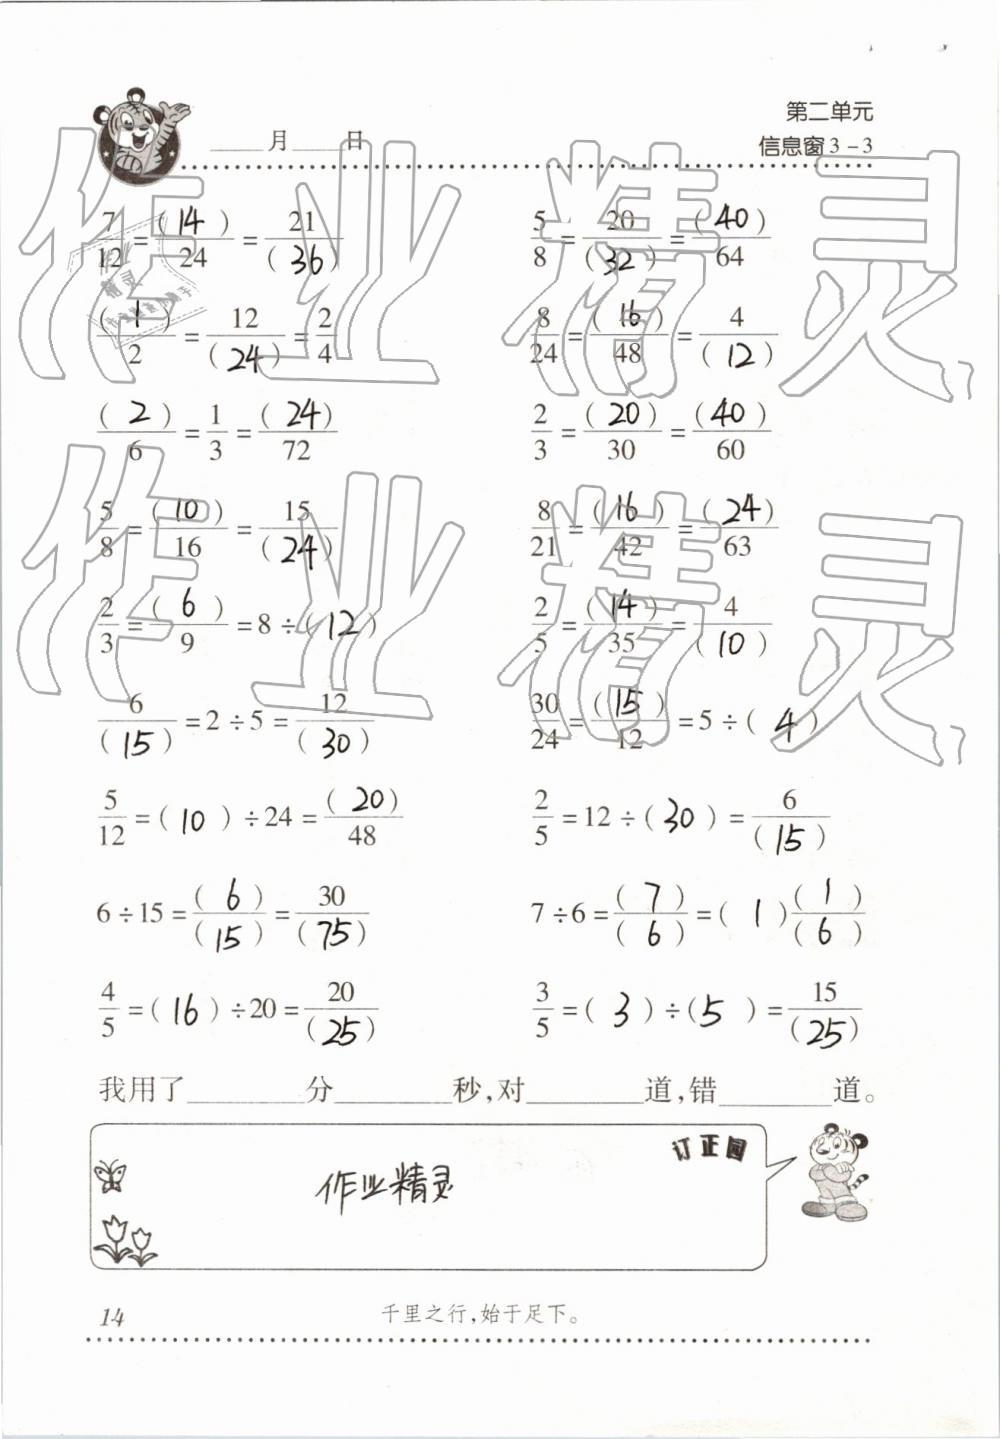 第二单元
____月____日 信息窗3-3
7/12=(14)/24=21/(36) 5/8=20/(32)=(40)/64
(1)/2=12/(24)=2/4 8/24=(16)/48=4/(12)
(2)/6=1/3=(24)/72 2/3=(20)/30=(40)/60
5/8=(10)/16=15/(24) 8/21=(16)/42=(24)/63
2/3=(6)/9=8÷(12) 2/5=(14)/35=4/(10)
6/(15)=2÷5=12/(30) 30/24=(15)/12=5÷(4)
5/12=(10)÷24=(20)/48 2/5=12÷(30)=6/(15)
6÷15=(6)/(15)=30/(75) 7÷6=(7)/(6)=(1)(1)/(6)
4/5=(16)÷20=20/(25) 3/5=(3)÷(5)=15/(25)
我用了____分____秒,对____道,错____道。
订正园
作业精灵
14 千里之行,始于足下。
作业精灵
作业精灵